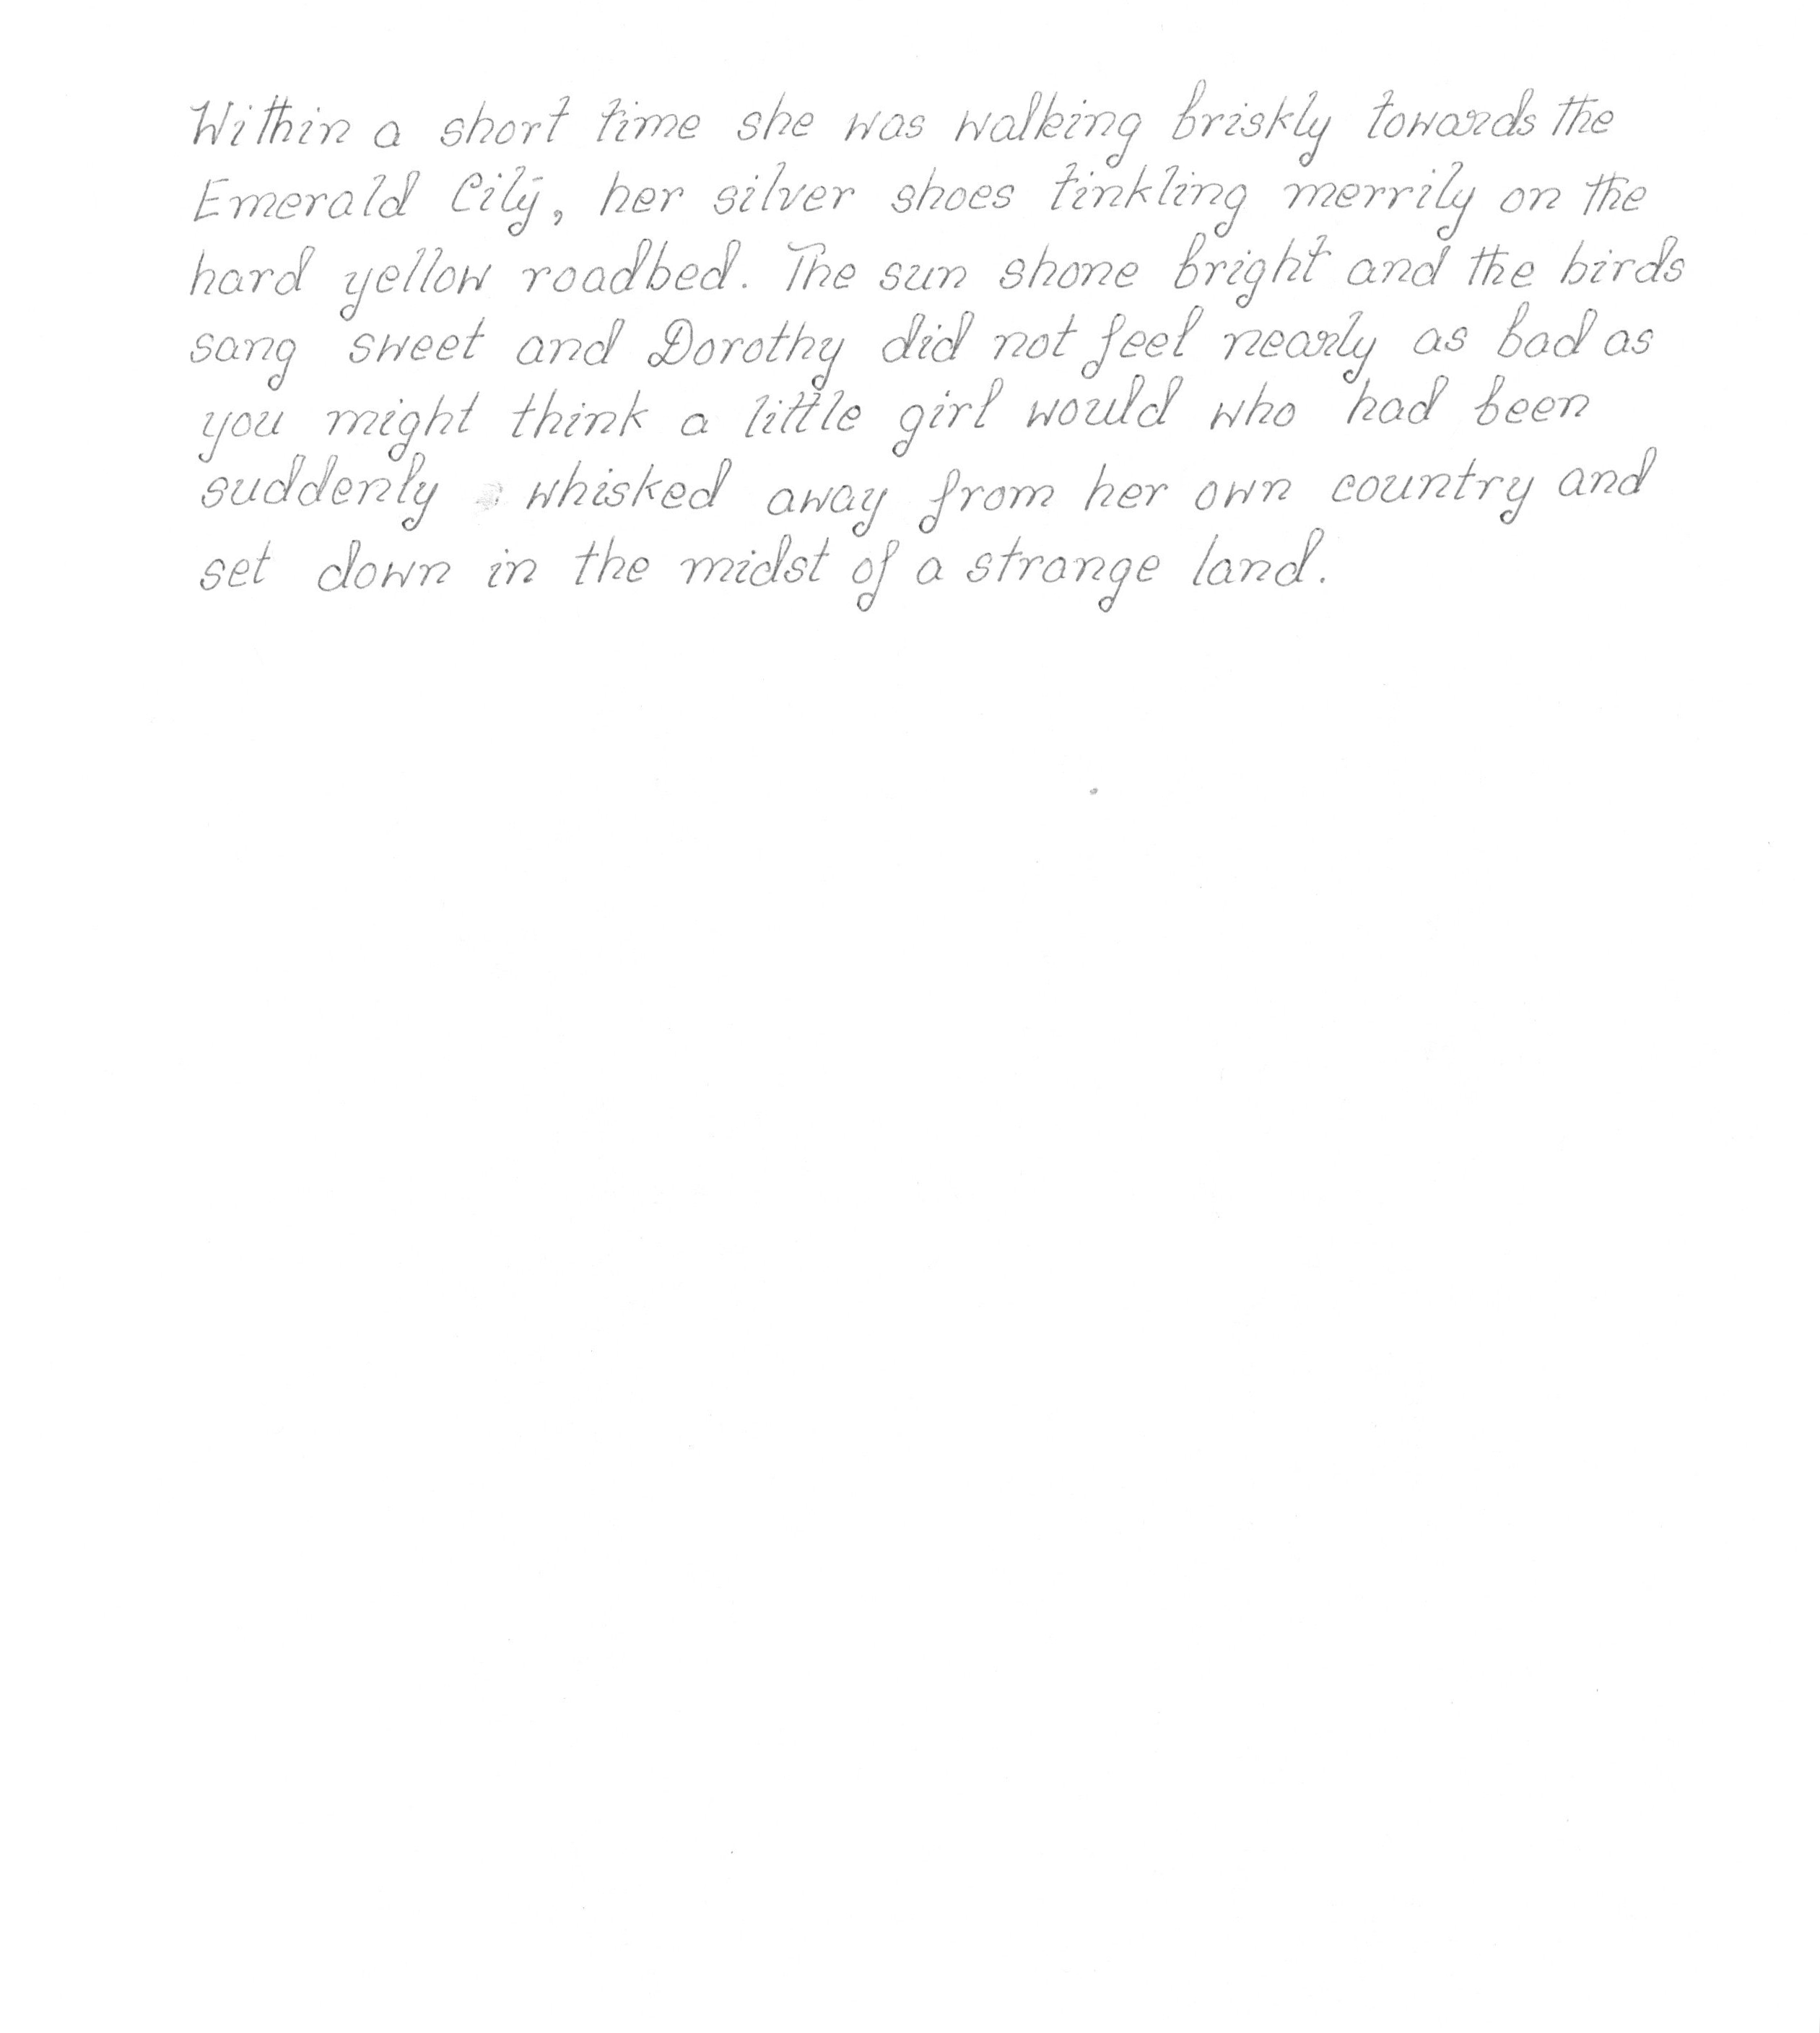 Within a short time she was walking briskly towards the
Emerald City, her silver shoes tinkling merrily on the
hard yellow roadbed. The sun shone bright and the birds
sang sweet and Dorothy did not feel nearly as bad as
you might think a little girl would who had been
suddenly whisked away from her own country and
set down in the midst of a strange land.